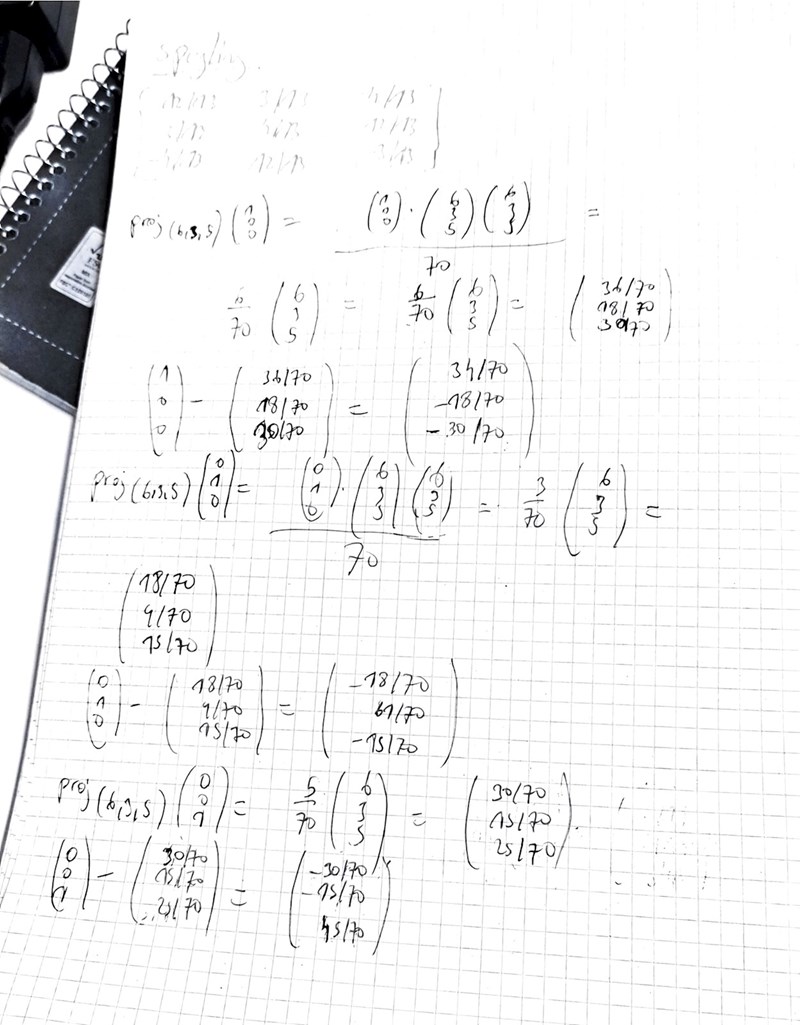 Spegling.
12/13 3/13 4/13
3/13 4/13 12/13
4/13 12/13 3/13
proj(6,3,5) (1 0 0) = (1 0 0) · (6 3 5) (6 3 5) / 70 =
6/70 (6 3 5) = 6/70 (6 3 5) = (36/70 18/70 30/70)
(1 0 0) - (36/70 18/70 30/70) = (34/70 -18/70 -30/70)
proj(6,3,5) (0 1 0) = (0 1 0) · (6 3 5) (6 3 5) / 70 = 3/70 (6 3 5) =
(18/70 9/70 15/70)
(0 1 0) - (18/70 9/70 15/70) = (-18/70 61/70 -15/70)
proj(6,3,5) (0 0 1) = 5/70 (6 3 5) = (30/70 15/70 25/70).
(0 0 1) - (30/70 15/70 25/70) = (-30/70 -15/70 45/70)